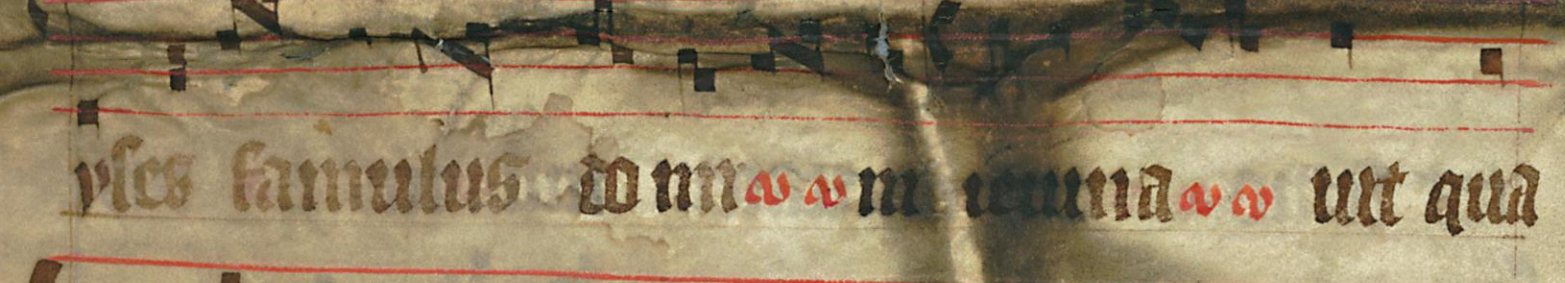 yses famulus domi ni ieiuna uit qua